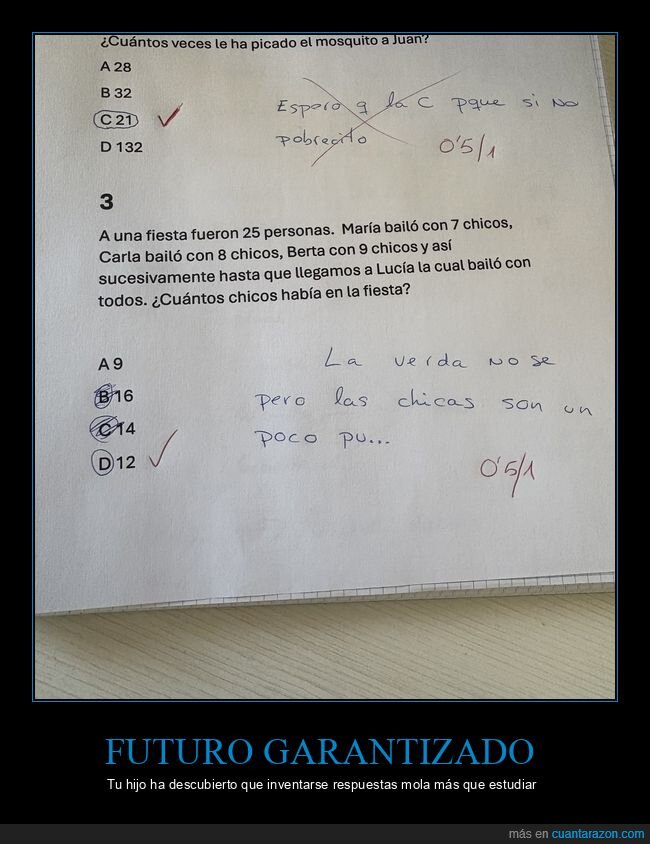 ¿Cuántos veces le ha picado el mosquito a Juan?
A 28
B 32
C 21
D 132
Espero q la C pque si no
pobrecito
0'5/1
3
A una fiesta fueron 25 personas. María bailó con 7 chicos,
Carla bailó con 8 chicos, Berta con 9 chicos y así
sucesivamente hasta que llegamos a Lucía la cual bailó con
todos. ¿Cuántos chicos había en la fiesta?
A 9
B 16
C 14
D 12
La verda no se
pero las chicas son un
poco pu...
0'5/1
FUTURO GARANTIZADO
Tu hijo ha descubierto que inventarse respuestas mola más que estudiar
más en cuantarazon.com